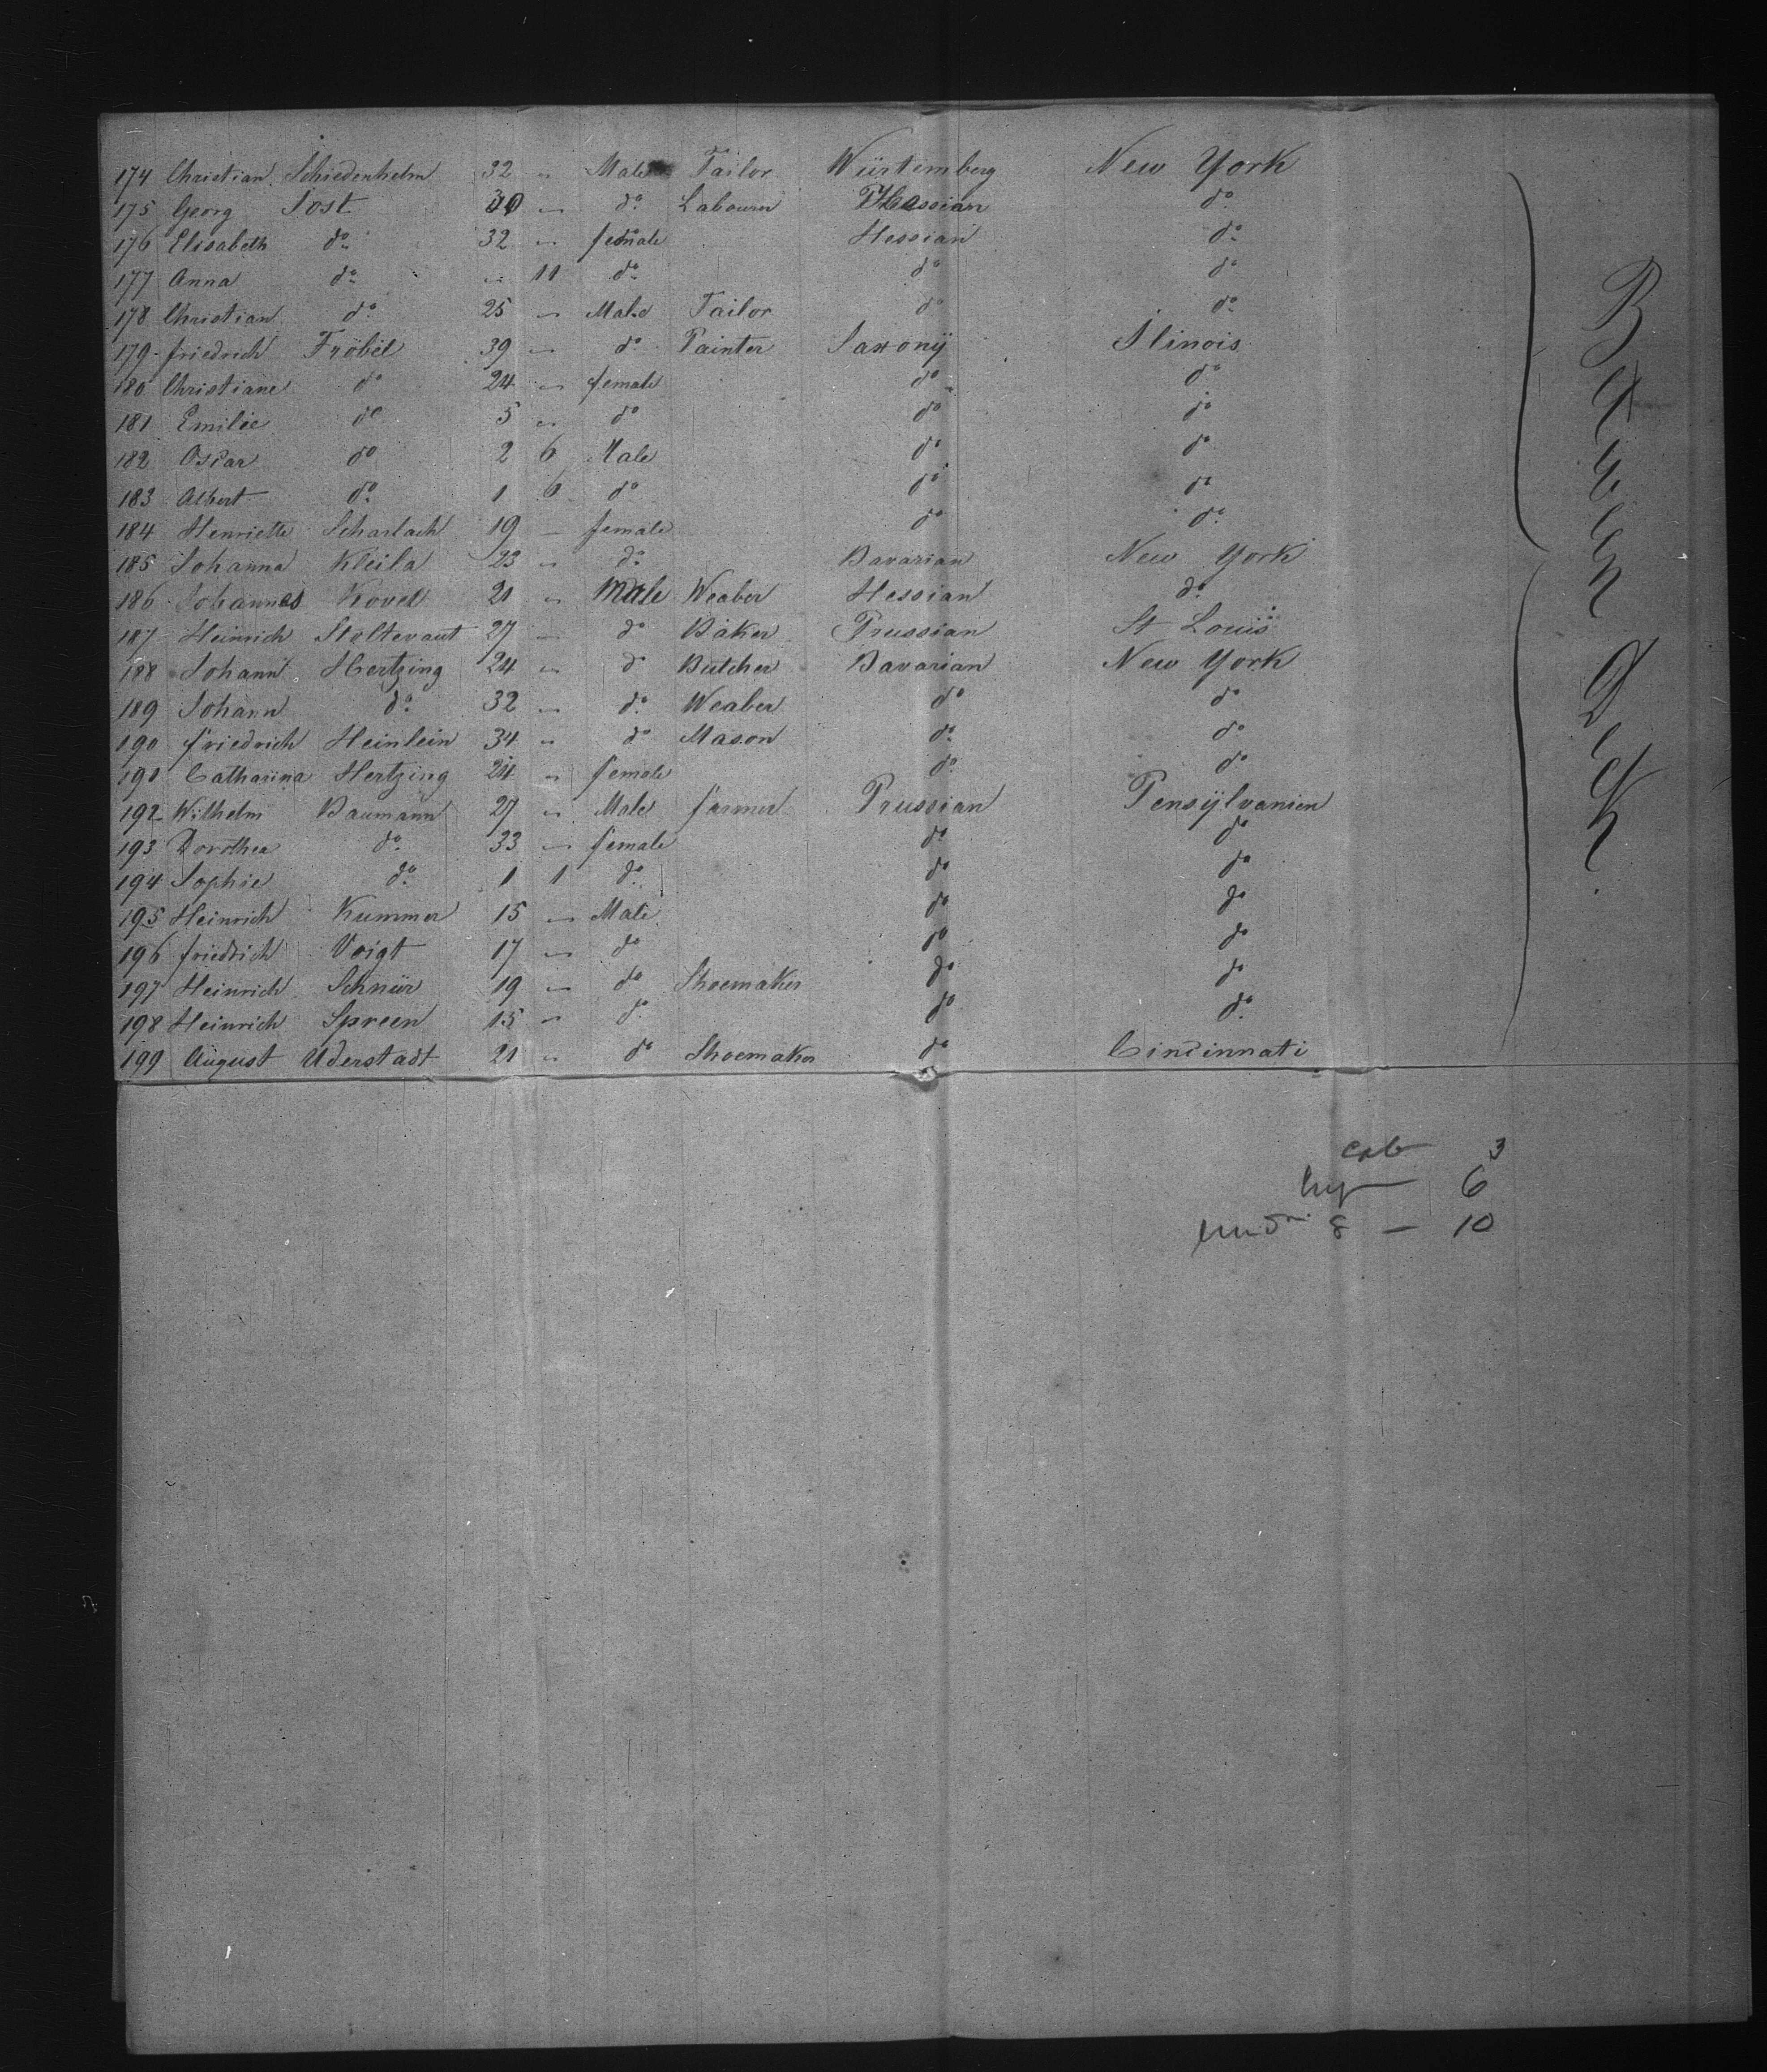 174 Christian Schiedenhelm 32 " Male Tailor Würtemberg New York
175 Georg Jost 30 " do Labourn Hessian do
176 Elisabeth do 32 " female Hessian do
177 Anna do " 11 do do do
178 Christian do 25 " Male Tailor do do
179 friedrich Fröbel 39 " do Painter Saxony Ilinois
180 Christiane do 24 " female do do
181 Emilie do 5 " do do do
182 Oscar do 2 6 Male do do
183 Albert do 1 6 do do do
184 Henriette Scharlach 19 " female do do
185 Johanna Kleila 23 " do Bavarian New York
186 Johannes Kovel 21 " Male Weaber Hessian do
187 Heinrich Stoltevaut 27 " do Baker Prussian St Louis
188 Johann Hertzing 24 " do Butcher Bavarian New York
189 Johann do 32 " do Weaber do do
190 friedrich Heinlein 34 " do Mason do do
191 Catharina Hertzing 24 " female do do
192 Wilhelm Baumann 27 " Male farmer Prussian Pensylvanien
193 Dorothea do 33 " female do do
194 Sophie do 1 1 do do do
195 Heinrich Kummer 15 " Male do do
196 friedrich Voigt 17 " do do do
197 Heinrich Schnür 19 " do Shoemaker do do
198 Heinrich Spreen 15 " do do do
199 August Uderstadt 21 " do Shoemaker do Cincinnati
Deck
cab 3
6
8 — 10